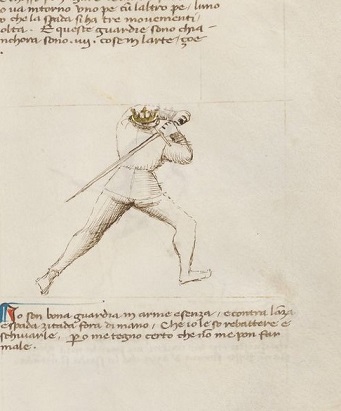 o va intorno uno pe cū laltro pe / luno
o che la spada si ha tre movementi /
olta . E queste guardie sono chia-
nchora sono .iiij. cose in larte / çoe

Io son bona guardia in arme e senza / e contra lanza
e spada zitada fora di mano / Che io le so rebattere e
schivarle . p o me tegno certo che no me pon far
male .